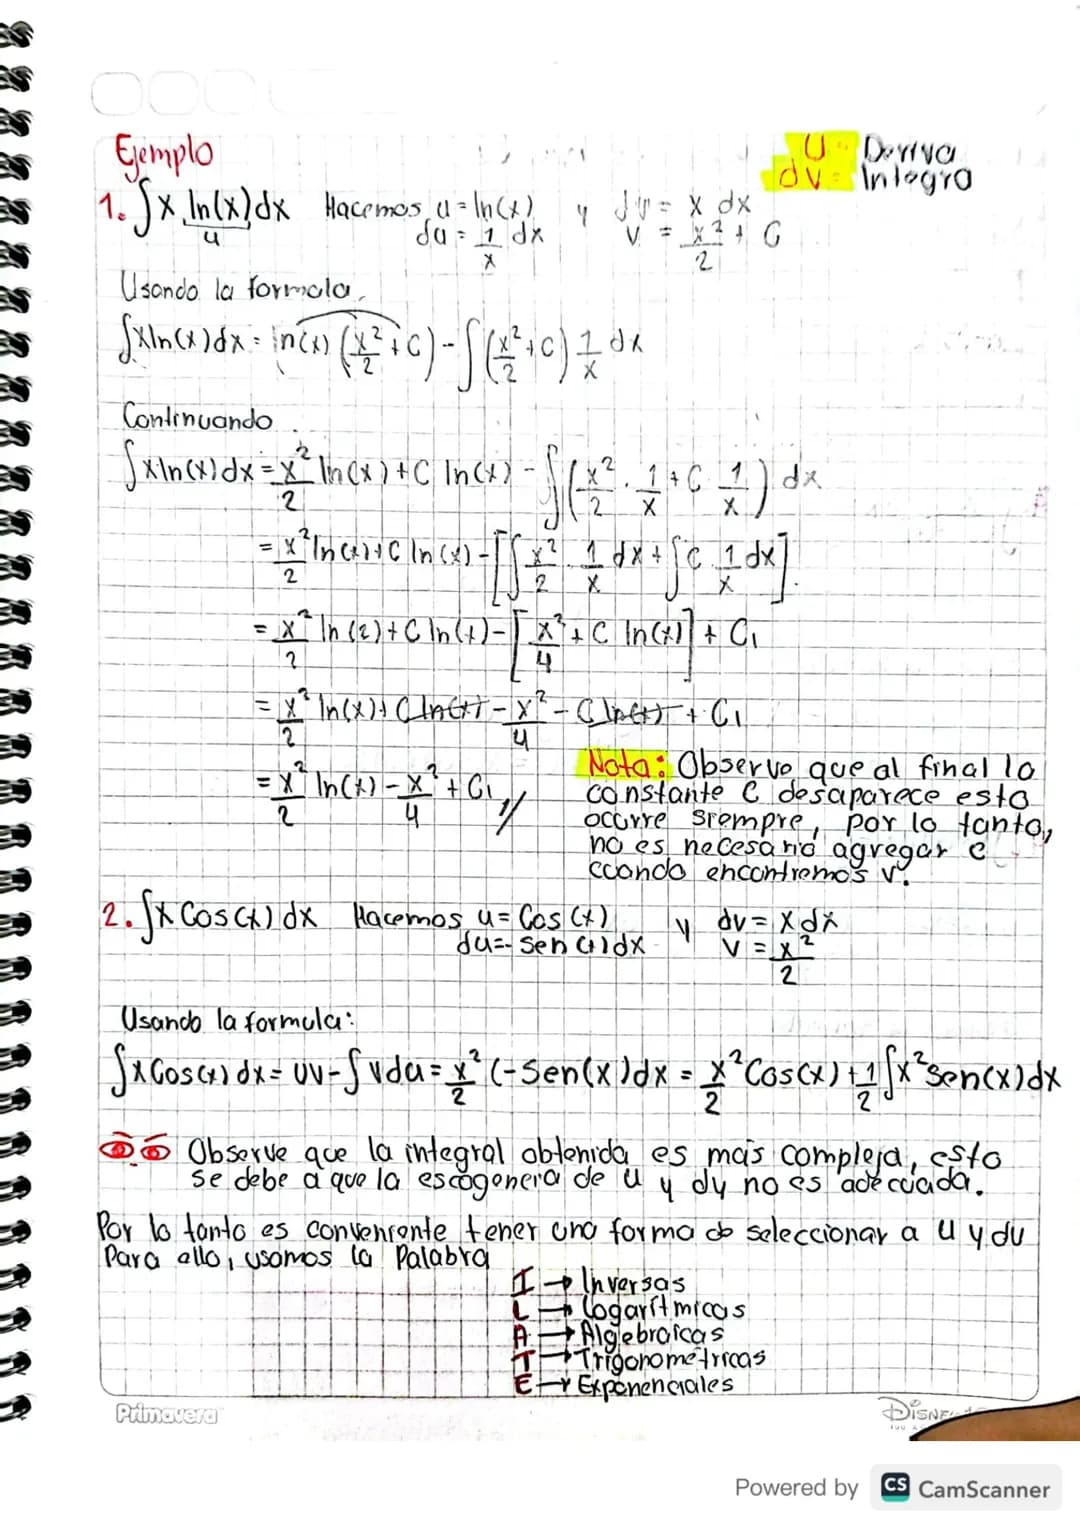 Ejemplo
U = Deriva
dv = Integra
1. ∫x ln(x)dx Hacemos u = ln(x) y dv = x dx
u du = 1/x dx v = x²/2 + C
Usando la formula,
∫xln(x)dx = ln(x) (x²/2 + C) - ∫(x²/2 + C) 1/x dx
Continuando
∫xln(x)dx = x²/2 ln(x) + C ln(x) - ∫(x²/2 · 1/x + C 1/x) dx
= x²/2 ln(x) + C ln(x) - [∫x²/2 · 1/x dx + ∫C · 1/x dx].
= x²/2 ln(2) + C ln(x) - [x²/4 + C ln(x)] + C₁
= x²/2 ln(x) + C ln(x) - x²/4 - C ln(x) + C₁
= x²/2 ln(x) - x²/4 + C₁ //
Nota: Observe que al final la
constante C desaparece esto
ocurre siempre, por lo tanto,
no es necesario agregar c
cuando encontremos v.
2. ∫x Cos(x) dx Hacemos u = Cos(x) y dv = x dx
du = - Sen(x)dx v = x²/2
Usando la formula:
∫x Cos(x) dx = uv - ∫vdu = x²/2 (-Sen(x)dx = x²/2 Cos(x) + 1/2 ∫x² Sen(x)dx
Observe que la integral obtenida es mas compleja, esto
se debe a que la escogenera de u y dv no es adecuada.
Por lo tanto es conveniente tener una forma de seleccionar a u y dv
Para ello, usamos la Palabra
I → Inversas
L → Logarítmicas
A → Algebraicas
T → Trigonométricas
E → Exponenciales
Primavera
Powered by CS CamScanner